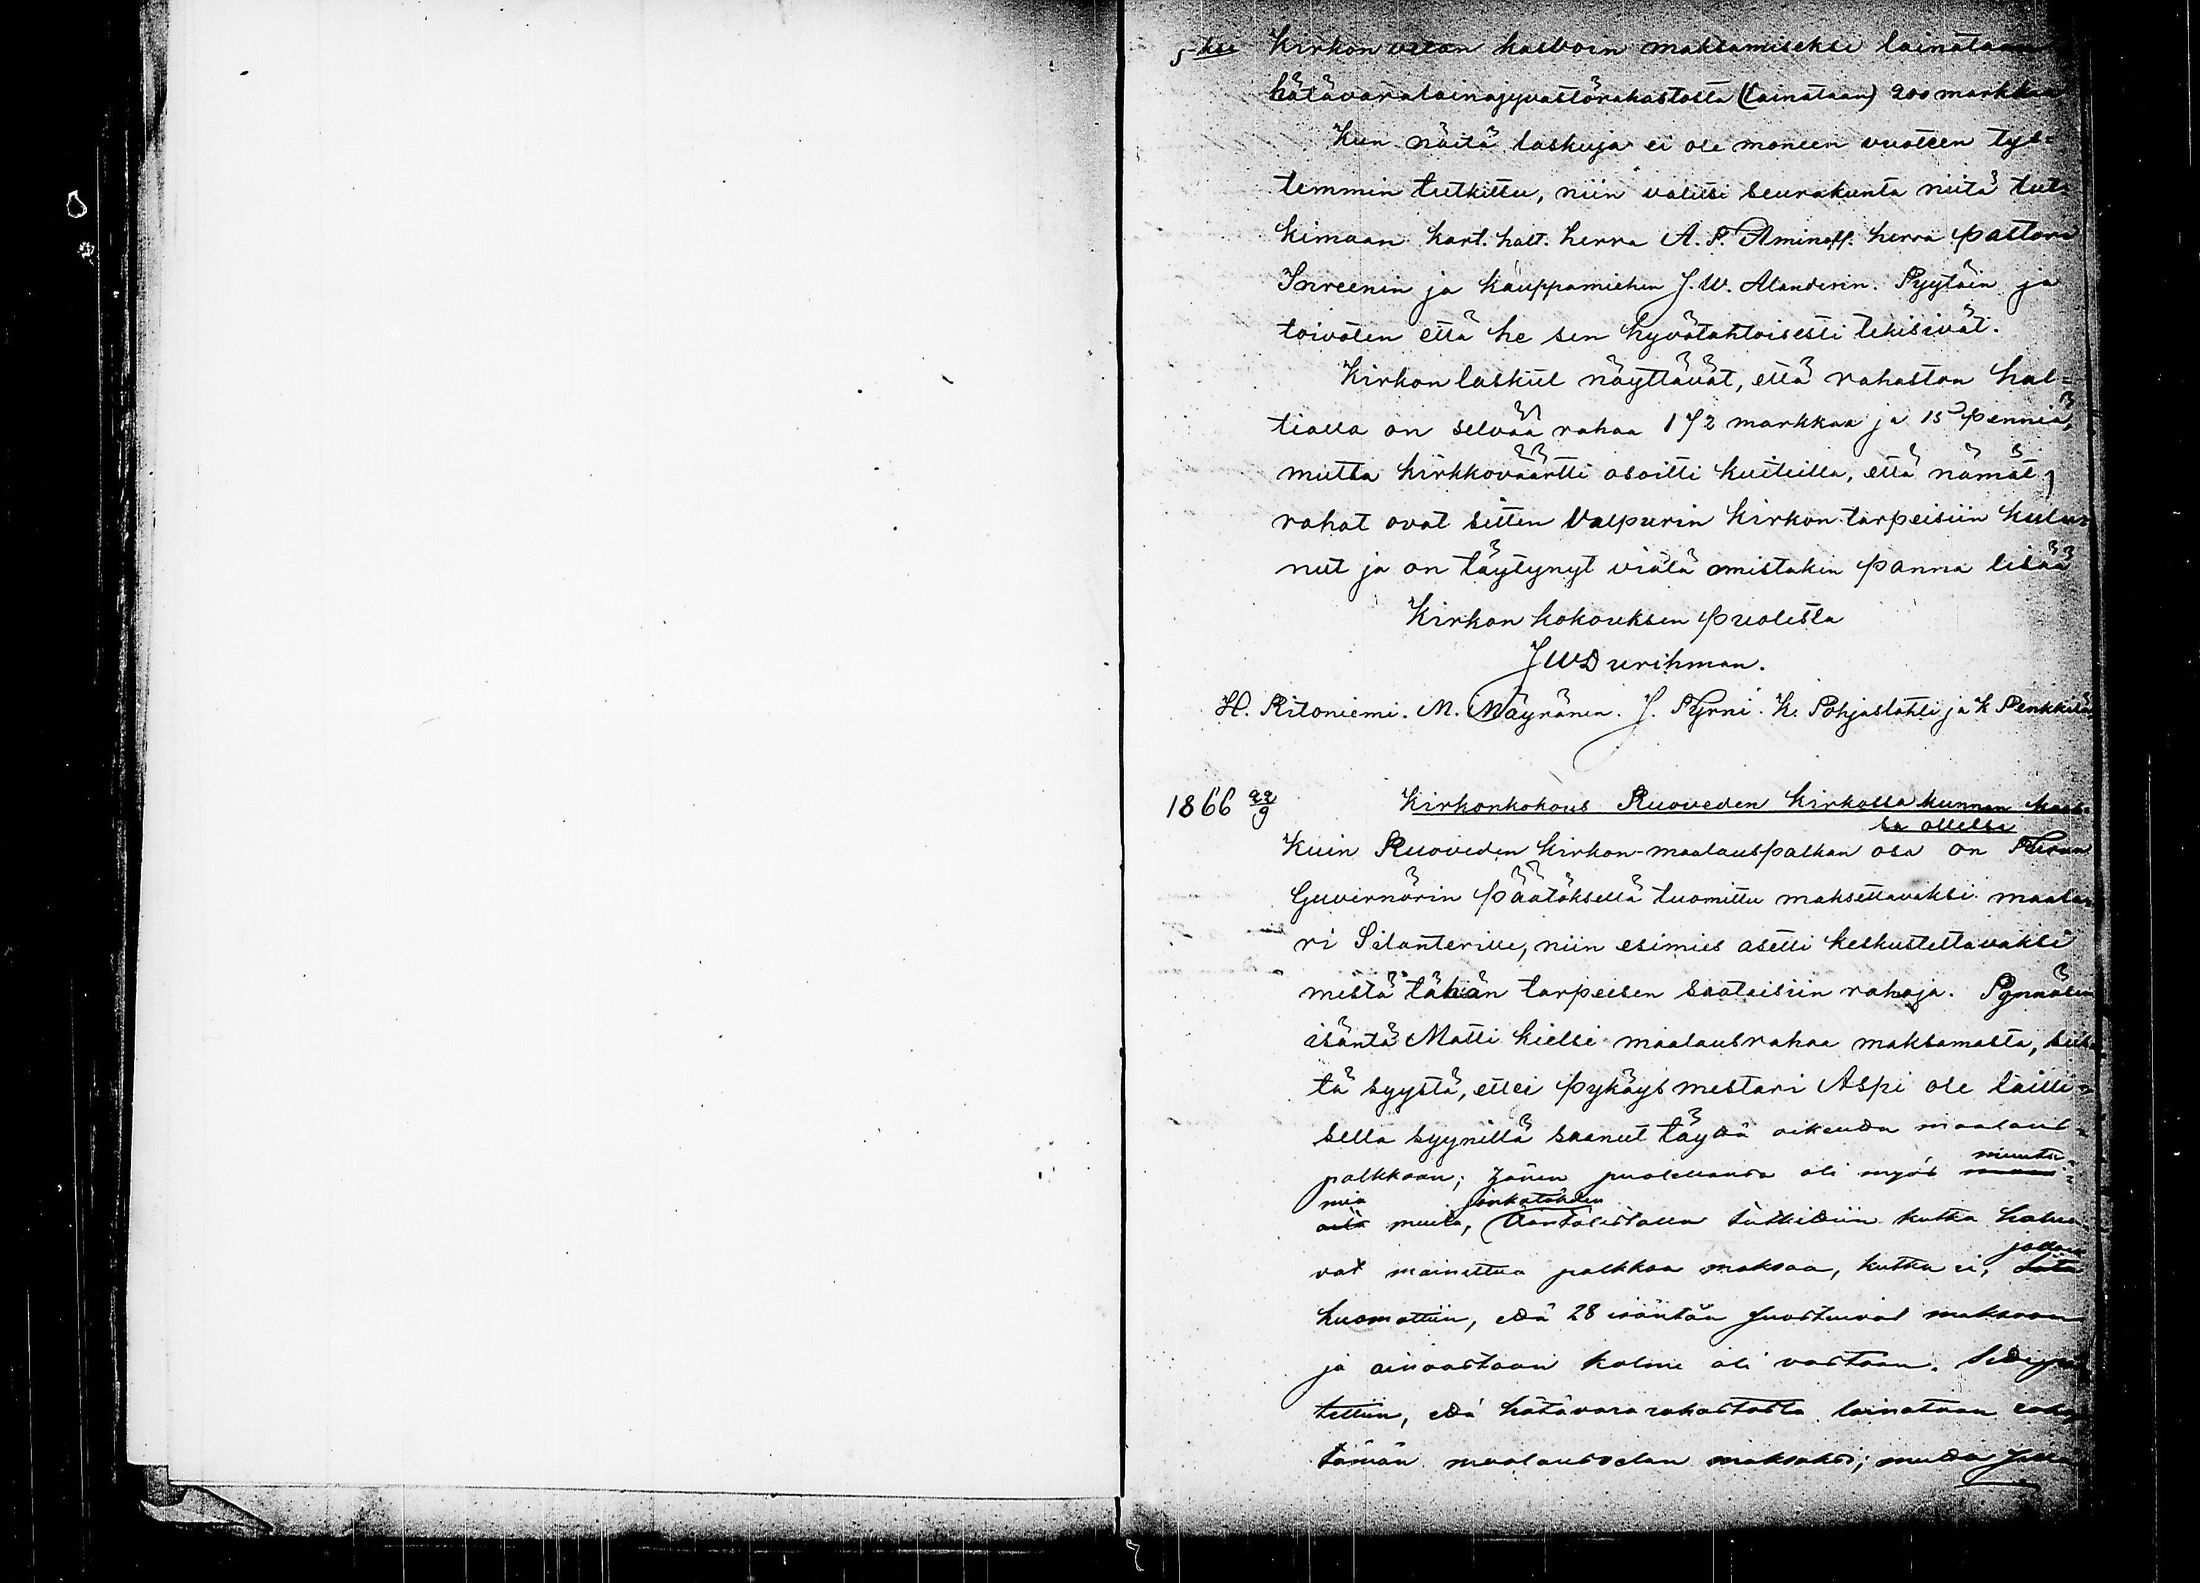 5 ksi Kirkon velan kasvoin maksamiseksi lainataan
hätävaralainajyvastörahastosta (lainataan) 200 markkaa
Kun näitä laskuja ei ole moneen vuoteen tye-
temmin tutkittu, niin valitsi seurakunta niitä tut-
kimaan kart. halt. herra A. P. Aminoff. herra pastori
Snreenin ja kauppamiehen J. W. Alanderin. Pyytäin ja
toivoten että he sen hyvätahtoisesti tekisivät.
Kirkon laskut näyttävät, että rahaston hal-
tialla on selvää rahaa 172 markkaa ja 15 penniä,
mutta kirkkoväärtti osoitti kuiteilla, että nämät
rahat ovat sitten Valpurin Kirkon tarpeisiin kulu-
nut ja on täytynyt vielä omistakin panna lisää
Kirkon kokouksen puolesta
J W Durchman.
H. Ritoniemi. M. Mäyränen. J. Pyrni. K. Pohjaslahti ja K Penkkilä
1866 22/9 Kirkonkokous Ruoveden Kirkossa kunnan koos-
sa ollessa
Kuin Ruoveden Kirkon-maalauspalkan osa on Turun
Guvernörin päätöksellä tuomittu maksettavaksi maala-
ri Silanterille, niin esimies asetti keskusteltavaksi
mistä tähän tarpeesen saataisiin rahoja. Pynnösen
isäntä Matti kielsi maalausrahaa maksamasta, siitä
tä syystä, ettei pykäysmestari Aspi ole lailli-
sella syynillä saanut täyttä oikeutta maalaus-
palkkaan; hänen puolellansa oli myös muuta-
mia muita, jonkatähden ääntölistalla tutkittiin kutka halua-
vat mainittua palkkaa maksaa, kutka ei, jolloin
huomattiin, että 28 isäntää suostuivat maksaan
ja ainoastaan kolme oli vastaan. Sitten
tettiin, että hätävararahastosta lainataan
tämän maalausvelan maksoksi; mutta